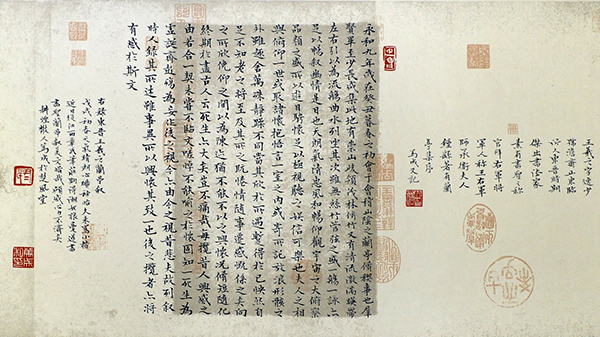 王羲之字逸少
山東臨
沂人東晉時期
傑出書法家
素有書聖之称
官拜右軍將
軍人称王右軍
師承衛夫人
鍾繇著有蘭
亭集序
萬成又記
永和九年歲在癸丑暮春之初會于會稽山陰之蘭亭脩禊事也羣
賢畢至少長咸集此地有崇山峻領茂林脩竹又有清流激湍暎帶
左右引以為流觴曲水列坐其次雖無絲竹管弦之盛一觴一詠亦
足以暢敘幽情是日也天朗氣清惠風和暢仰觀宇宙之大俯察
品類之盛所以遊目騁懷足以極視聽之娛信可樂也夫人之相
與俯仰一世或取諸懷抱悟言一室之內或寄所託放浪形骸之
外雖趣舍萬殊靜躁不同當其欣於所遇暫得於己怏然自
足不知老之將至及其所之既惓情隨事遷感慨係之矣向
之所欣俛仰之間以為陳迹猶不能不以之興懷況脩短隨化
終期於盡古人云死生亦大矣豈不痛哉每攬昔人興感之
由若合一契未嘗不臨文嗟悼不能喻之於懷固知一死生為
虛誕齊彭殤為妄作後之視今亦由今之視昔悲夫故列敘
時人錄其所述雖世殊事異所以興懷其致一也後之攬者亦將
有感於斯文
右錄東晉王羲之蘭亭敘
戊戌初春天氣晴朗